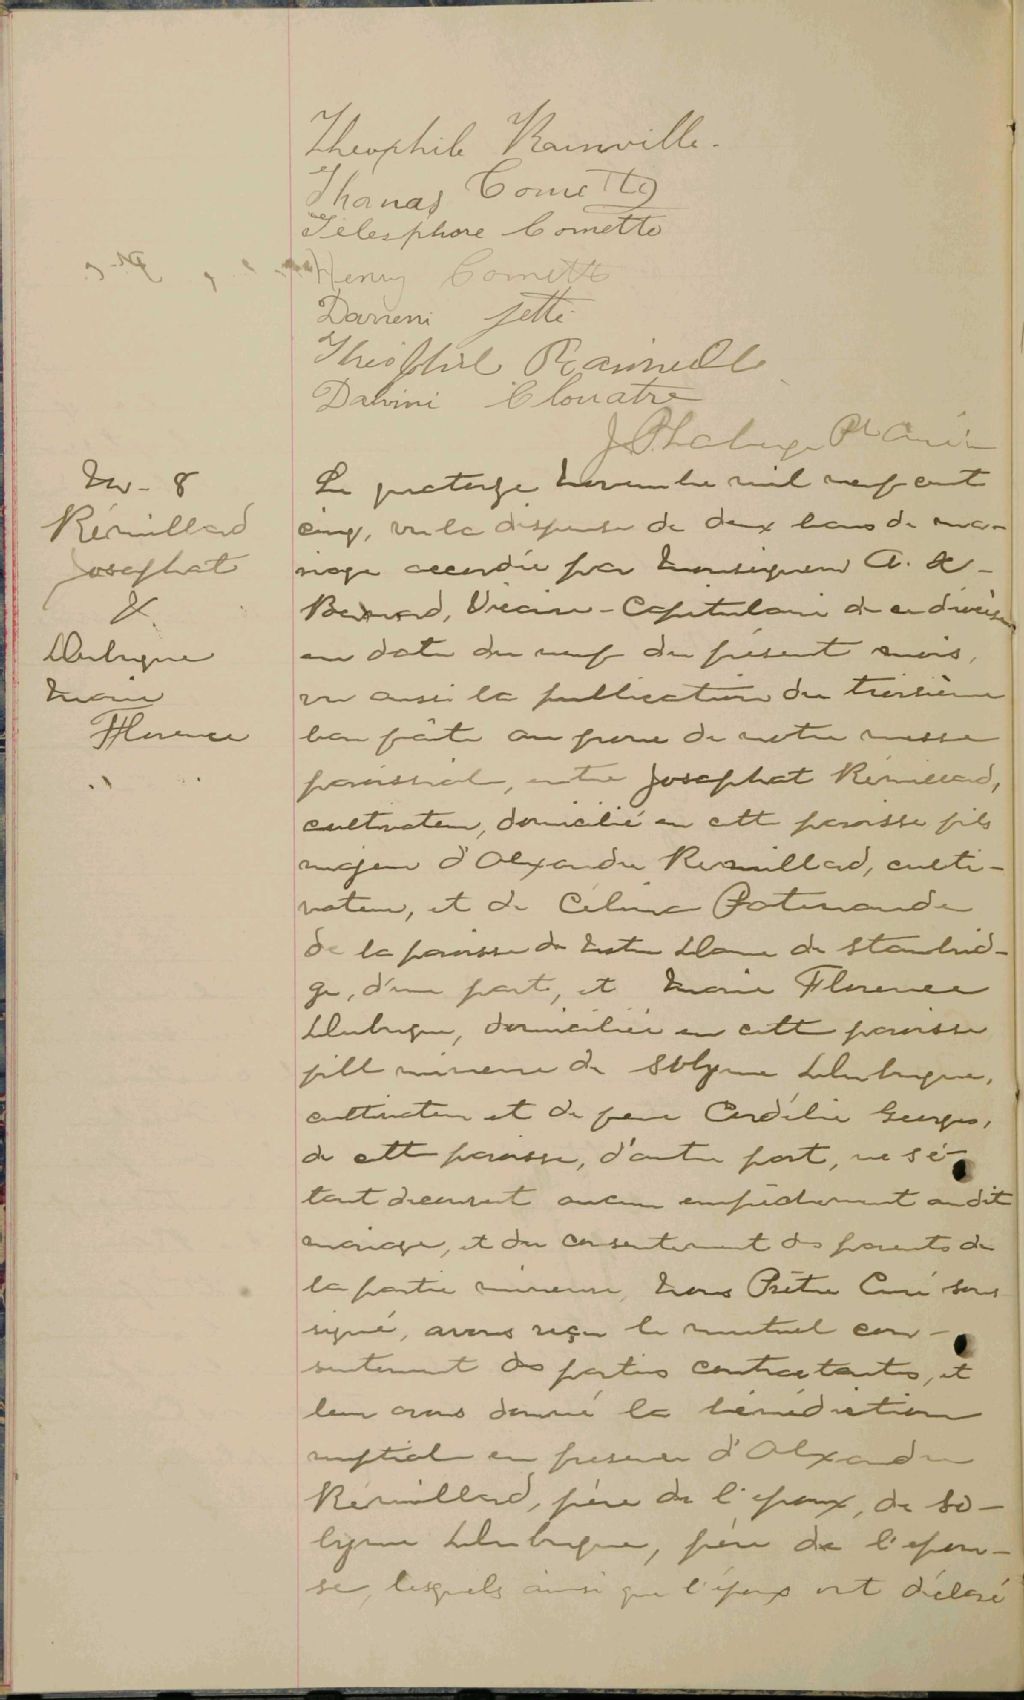 Theophile Rainville.
Thomas Comette
Télesphore Comette
Henry Comette
Damem Jetté
Théophil Rainville
Dalvini Clouatre
J. P. Ptre Curé
M - 8
Rémillard
Josaphat
&
Dubuque
Marie
Florence
Le quatorze Novembre mil neuf cent
cinq, vu la dispense de deux bans de ma-
riage accordée par Monseigneur A. X-
Bernard, Vicaire-Capitulaire de ce diocèse
en date du neuf du présent mois,
vu aussi la publication du troisième
ban faite au prone de notre messe
paroissiale, entre Josaphat Rémillard,
cultivateur, domicilié en cette paroisse fils
majeur d'Alexandre Remillard, culti-
vateur, et de Célina Patenaude
de la paroisse de Notre Dame de Stanbrid-
ge, d'une part, et Marie Florence
Dubuque, domiciliée en cette paroisse
fille mineure de Solyme Dubuque,
cultivateur et de feue Cordélie Georges,
de cette paroisse, d'autre part, ne s'é-
tant découvert aucun empêchement au dit
mariage, et du consentement des parents de
la partie mineure, Nous Prêtre Curé sous
signé, avons reçu le mutuel con-
sentement des parties contractantes, et
leur avons donné la bénédiction
nuptiale en présence d'Alexandre
Rémillard, père de l'epoux, de So-
lyme Dubuque, père de l'epou-
se, lesquels ainsi que l'époux ont déclaré